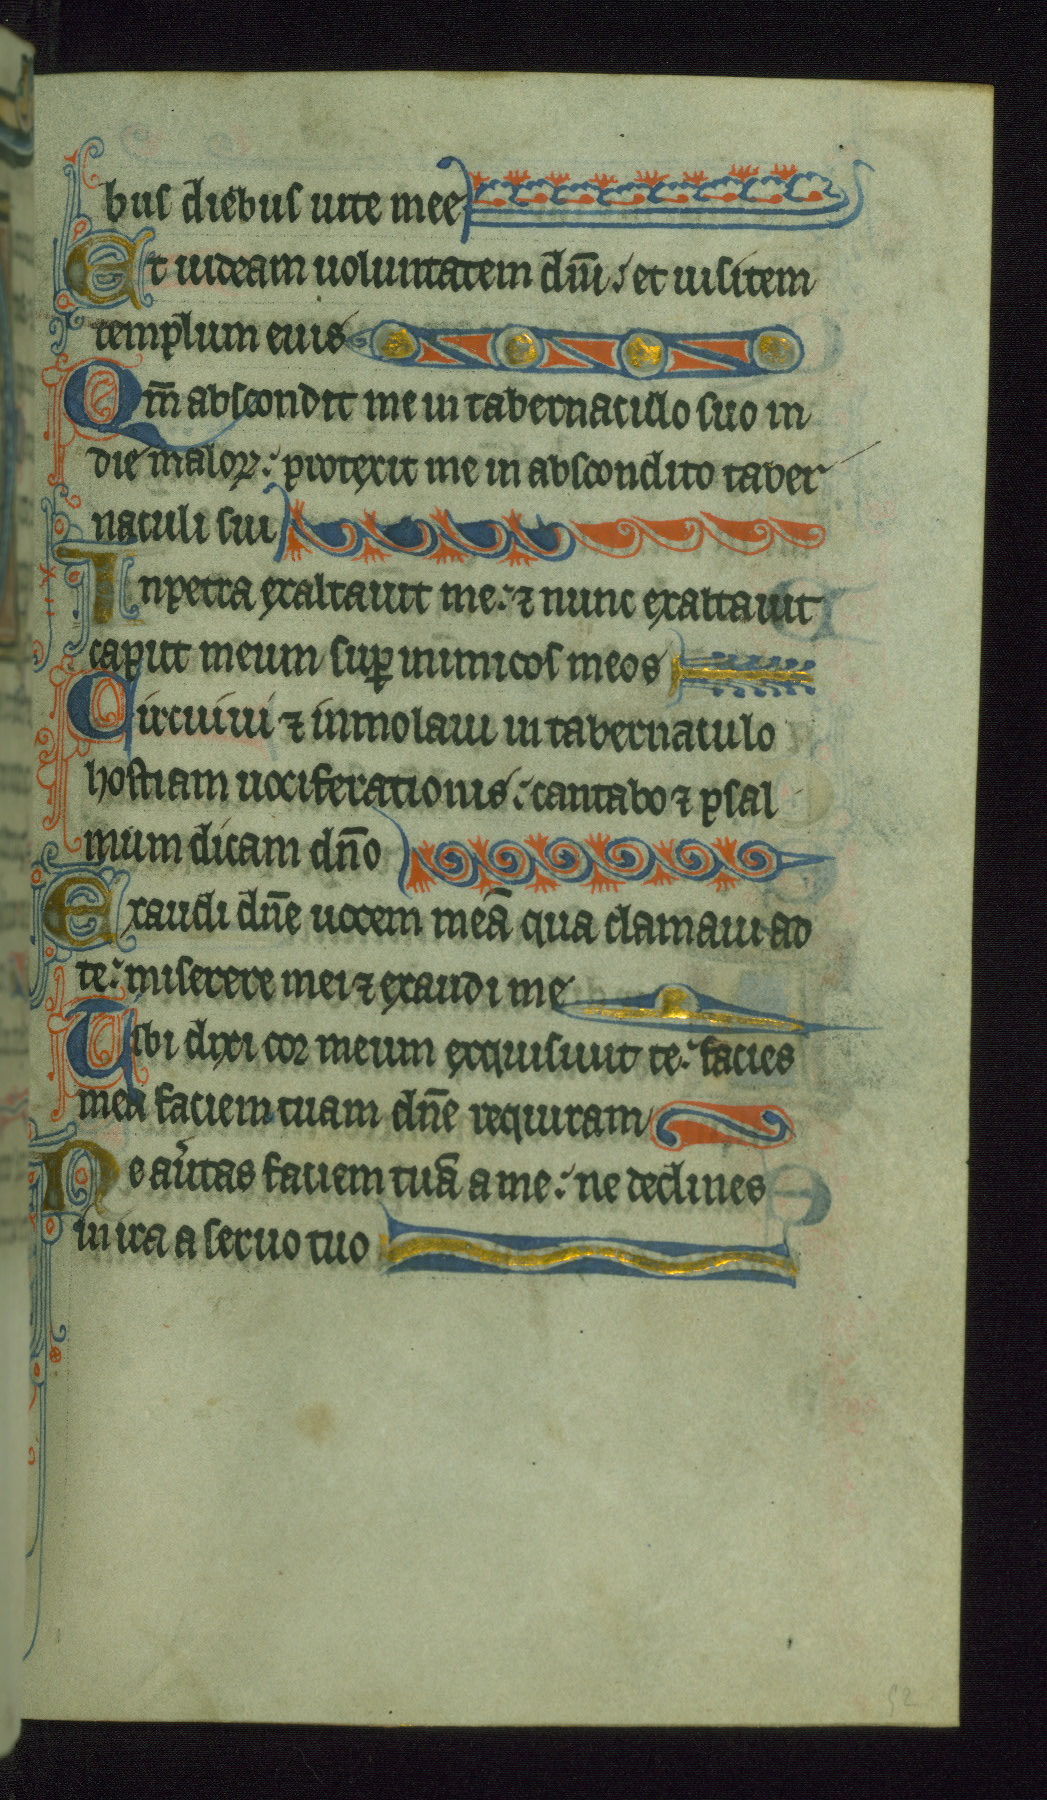 bus diebus uite mee
Et uideam uoluntatem dn̄i ; et uisitem
templum eius
Qm̄ abscondit me in tabernaculo suo in
die maloꝝ : protexit me in abscondito taber
naculi sui
In petra exaltauit me : ⁊ nunc exaltauit
caput meum suꝑ inimicos meos
Circuiui ⁊ inmolaui in tabernaculo
hostiam uociferationis : cantabo ⁊ psal
mum dicam dn̄o
Exaudi dn̄e uocem meā qua clamaui ad
te : miserere mei ⁊ exaudi me
Tibi dixi cor meum exquisiuit te : facies
mea faciem tuam dn̄e requiram
Ne au̾tas faciem tuā a me : ne declines
in ira a seruo tuo
52